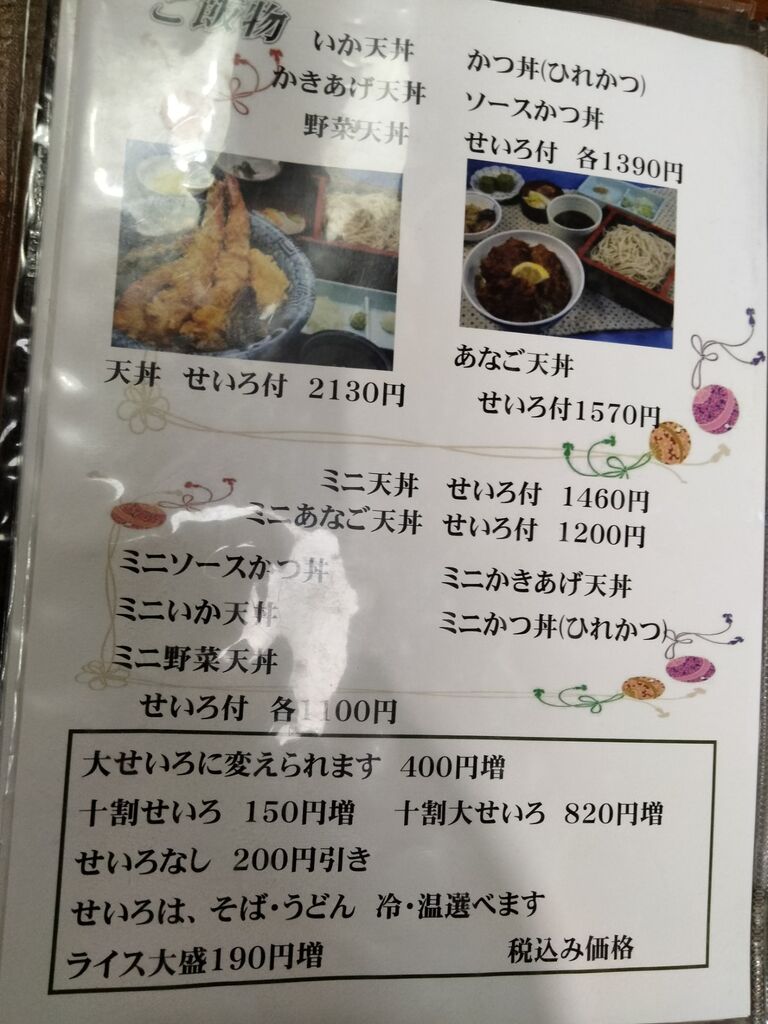 ご飯物
いか天丼
かきあげ天丼
野菜天丼
かつ丼(ひれかつ)
ソースかつ丼
せいろ付 各1390円
天丼 せいろ付 2130円
あなご天丼
せいろ付1570円
ミニ天丼 せいろ付 1460円
ミニあなご天丼 せいろ付 1200円
ミニソースかつ丼
ミニいか天丼
ミニ野菜天丼
ミニかきあげ天丼
ミニかつ丼(ひれかつ)
せいろ付 各1100円
大せいろに変えられます 400円増
十割せいろ 150円増 十割大せいろ 820円増
せいろなし 200円引き
せいろは、そば・うどん 冷・温選べます
ライス大盛190円増 税込み価格